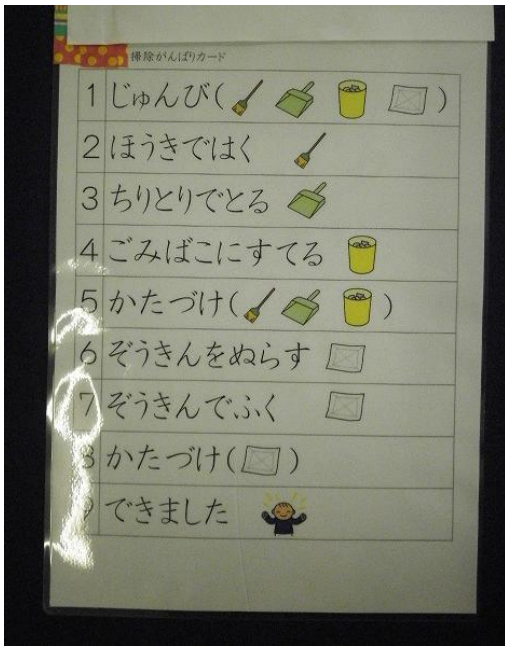 掃除がんばりカード
1 じゅんび( )
2 ほうきではく
3 ちりとりでとる
4 ごみばこにすてる
5 かたづけ( )
6 ぞうきんをぬらす
7 ぞうきんでふく
8 かたづけ( )
9 できました